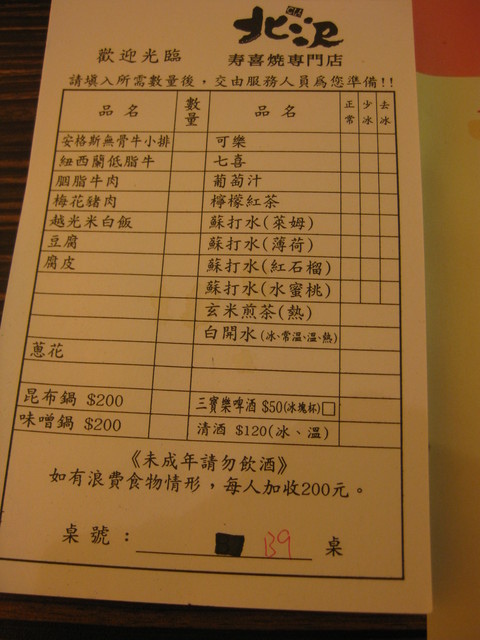 北澤
歡迎光臨 寿喜燒專門店
請填入所需數量後，交由服務人員為您準備!!
品名 數量 品名 正常 少冰 去冰
安格斯無骨牛小排 可樂
紐西蘭低脂牛 七喜
胭脂牛肉 葡萄汁
梅花豬肉 檸檬紅茶
越光米白飯 蘇打水(萊姆)
豆腐 蘇打水(薄荷)
腐皮 蘇打水(紅石榴)
蘇打水(水蜜桃)
玄米煎茶(熱)
白開水(冰、常溫、溫、熱)
蔥花
昆布鍋 $200 三寶樂啤酒 $50(冰塊杯)□
味噌鍋 $200 清酒 $120(冰、溫)
《未成年請勿飲酒》
如有浪費食物情形，每人加收200元。
桌號： B9 桌